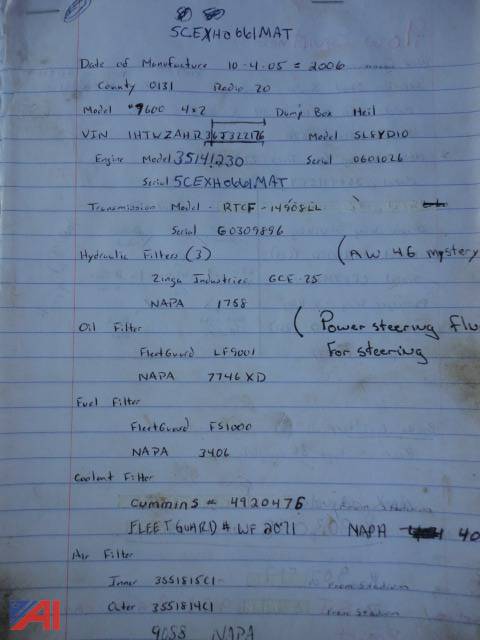 5CEXH0661MAT
Date of Manufacture 10-4-05 = 2006
County 0131 Radio 20
Model 9600 4x2 Dump Box Heil
VIN 1HTWZAHR36J322176 Model SL8YD10
Engine Model 35141230 Serial 0601026
Serial 5CEXH0661MAT
Transmission Model - RTCF-14908LL
Serial G0309896
Hydraulic Filters (3) (AW 46 mystery
Zinga Industries GCE-25
NAPA 1758
Oil Filter (Power steering Flu
FleetGuard LF9001 For steering
NAPA 7746XD
Fuel Filter
FleetGuard FS1000
NAPA 3406
Coolant Filter
Cummins # 4920476
FLEETGUARD # WF 2071 NAPA 40
Air Filter
Inner 3551815C1
Outer 3551814C1
9088 NAPA
AI